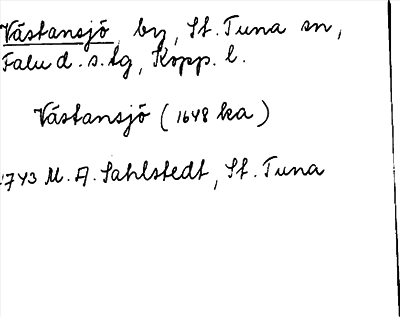 Västansjö, by, St. Tuna sn,
Falu d. s. tg, Kopp. l.
Västansjö (1648 ka)
1743 M. A. Sahlstedt, St. Tuna